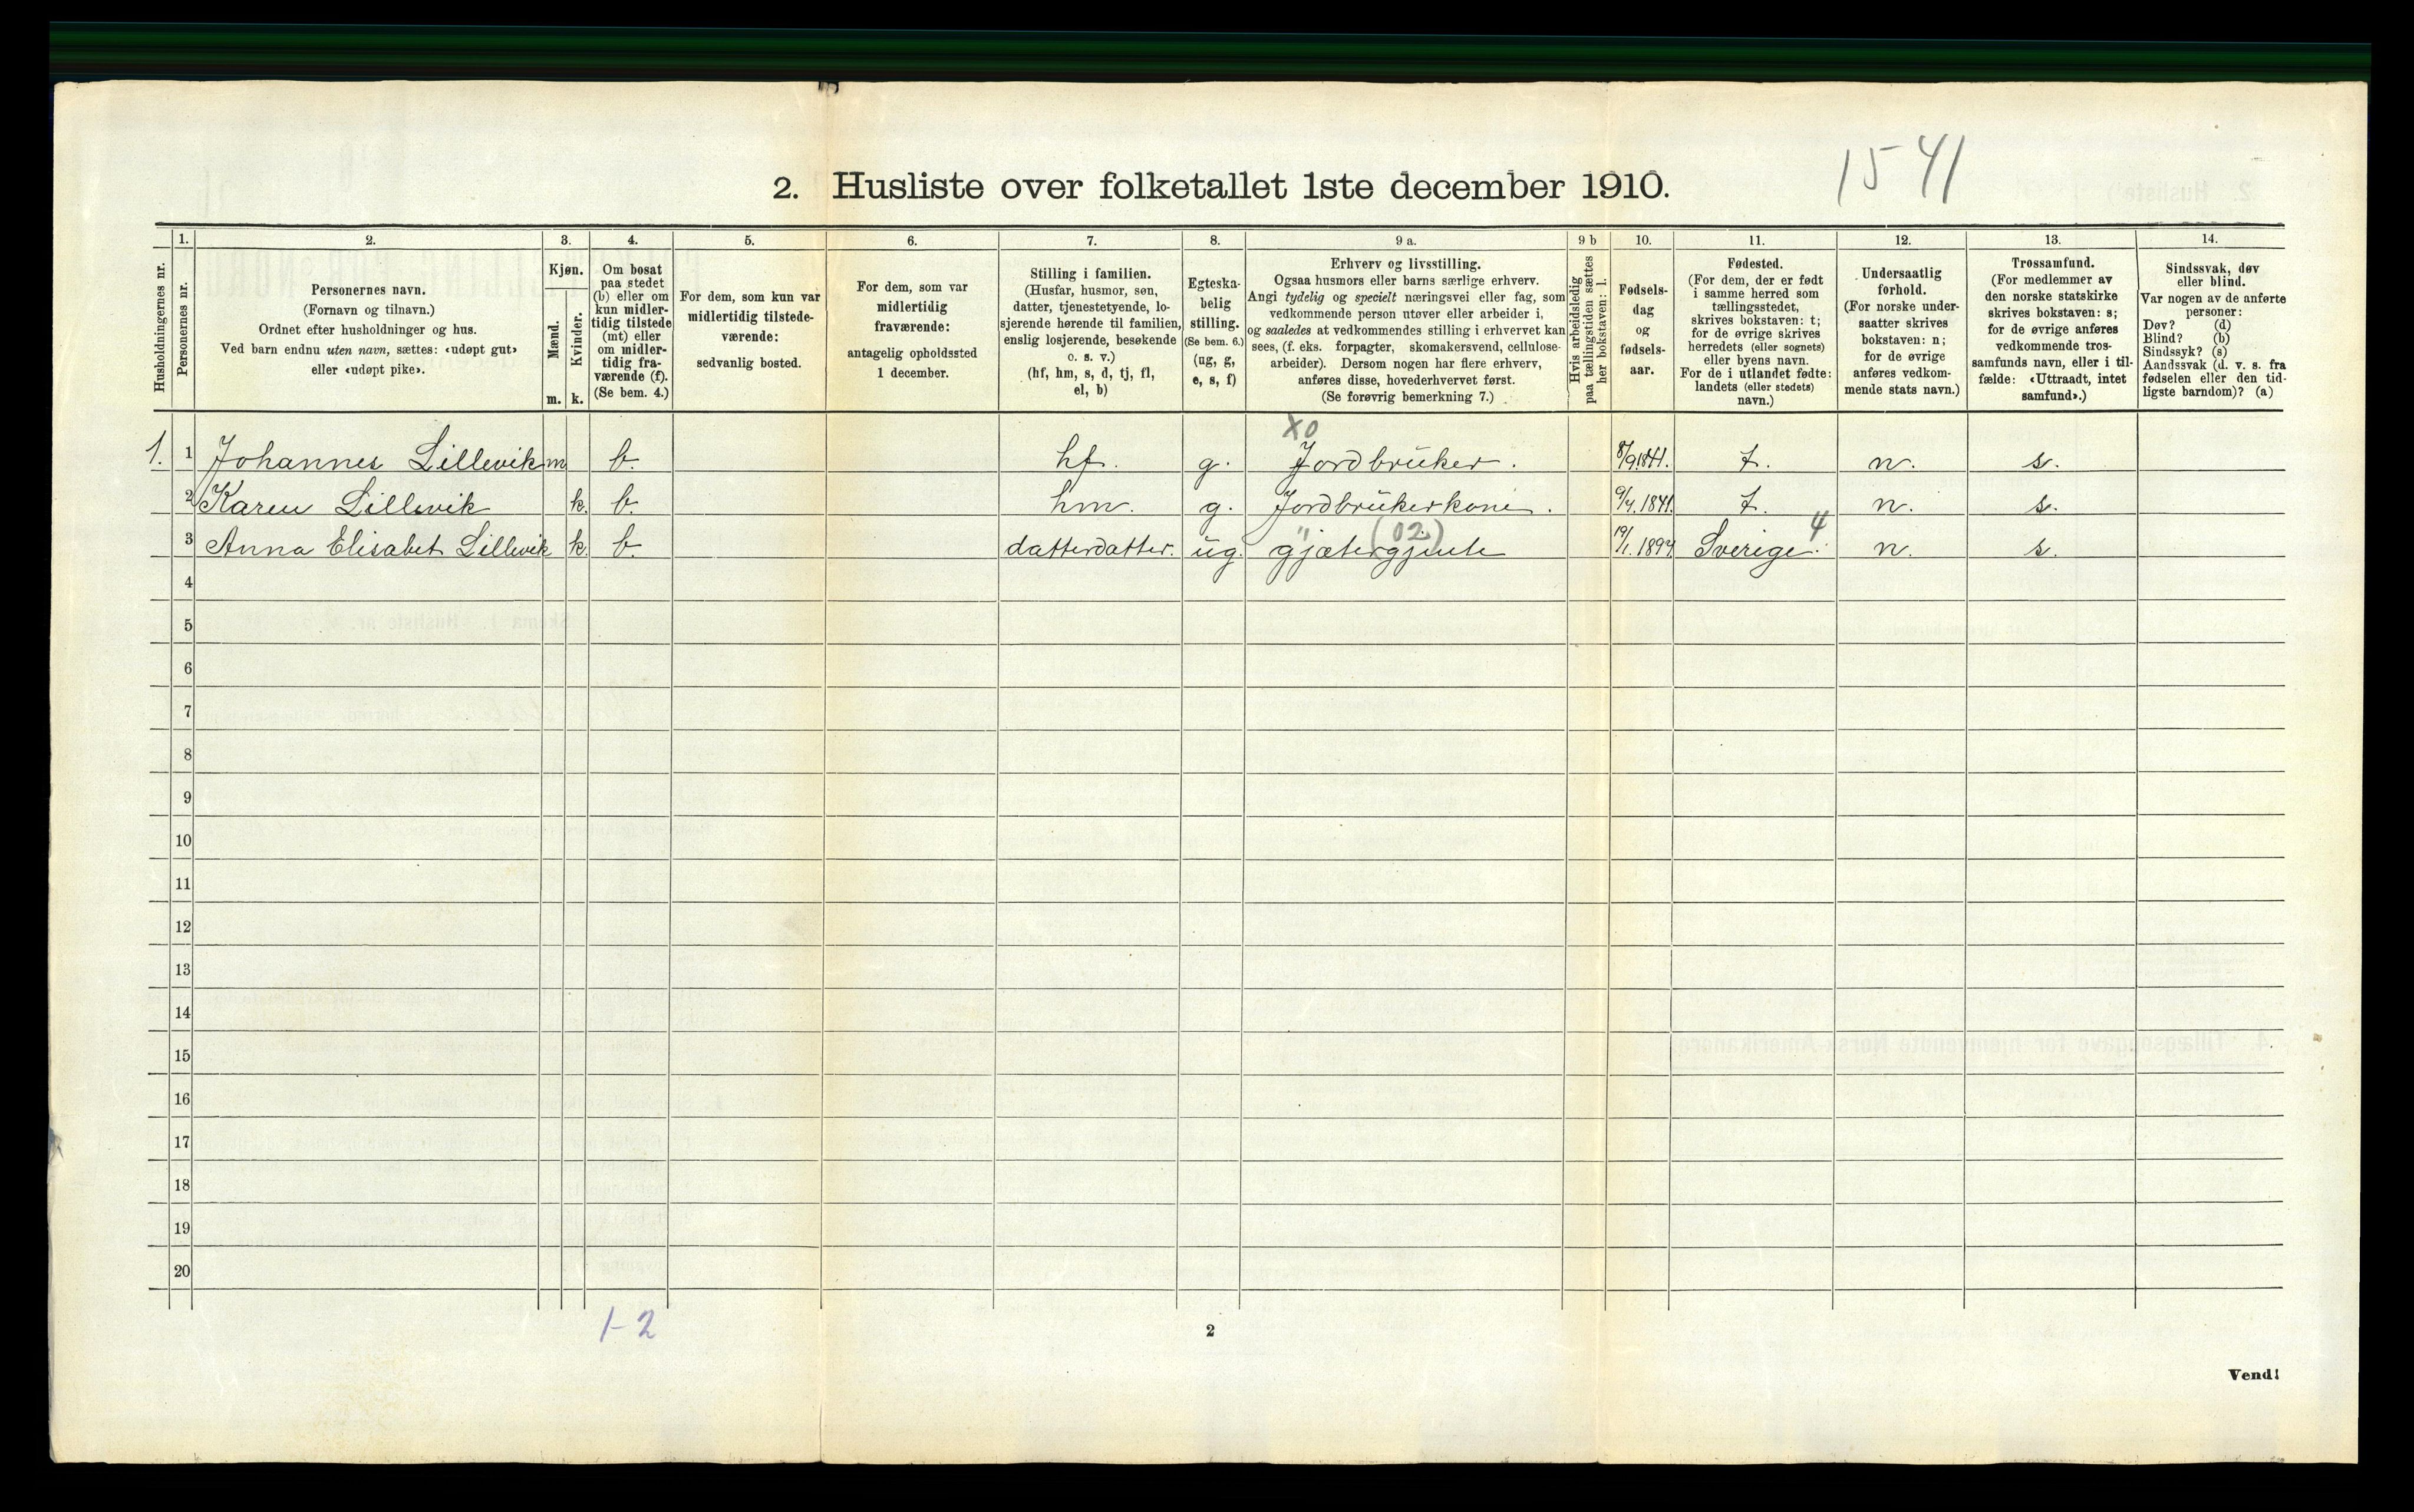 1541
2. Husliste over folketallet 1ste december 1910.
Husholdningernes nr.
1.
Personernes nr.
2.
Personernes navn.
(Fornavn og tilnavn.)
Ordnet efter husholdninger og hus.
Ved barn endnu uten navn, sættes: «udøpt gut»
eller «udøpt pike».
3.
Kjøn.
Mænd.
Kvinder.
m. k.
4.
Om bosat
paa stedet
(b) eller om
kun midler-
tidig tilstede
(mt) eller
om midler-
tidig fra-
værende (f).
(Se bem. 4.)
5.
For dem, som kun var
midlertidig tilstede-
værende:
sedvanlig bosted.
6.
For dem, som var
midlertidig
fraværende:
antagelig opholdssted
1 december.
7.
Stilling i familien.
(Husfar, husmor, søn,
datter, tjenestetyende, lo-
sjerende hørende til familien,
enslig losjerende, besøkende
o. s. v.)
(hf, hm, s, d, tj, fl,
el, b)
8.
Egteska-
belig
stilling.
(Se bem. 6.)
(ug, g,
e, s, f)
9 a.
Erhverv og livsstilling.
Ogsaa husmors eller barns særlige erhverv.
Angi tydelig og specielt næringsvei eller fag, som
vedkommende person utøver eller arbeider i,
og saaledes at vedkommendes stilling i erhvervet kan
sees, (f. eks. forpagter, skomakersvend, cellulose-
arbeider). Dersom nogen har flere erhverv,
anføres disse, hovederhvervet først.
(Se forøvrig bemerkning 7.)
9 b
Hvis arbeidsledig
paa tællingstiden sættes
her bokstaven: l.
10.
Fødsels-
dag
og
fødsels-
aar.
11.
Fødested.
(For dem, der er født
i samme herred som
tællingsstedet,
skrives bokstaven: t;
for de øvrige skrives
herredets (eller sognets)
eller byens navn.
For de i utlandet fødte:
landets (eller stedets)
navn.)
12.
Undersaatlig
forhold.
(For norske under-
saatter skrives
bokstaven: n;
for de øvrige
anføres vedkom-
mende stats navn.)
13.
Trossamfund.
(For medlemmer av
den norske statskirke
skrives bokstaven: s;
for de øvrige anføres
vedkommende tros-
samfunds navn, eller i til-
fælde: «Uttraadt, intet
samfund».)
14.
Sindssvak, døv
eller blind.
Var nogen av de anførte
personer:
Døv? (d)
Blind? (b)
Sindssyk? (s)
Aandssvak (d. v. s. fra
fødselen eller den tid-
ligste barndom)? (a)
X0
1. 1 Johannes Lillevik m b. hf. g. Jordbruker. 8/9 1841. t. n. s.
2 Karen Lillevik k. b. hm. g. Jordbrukerkone. 9/4. 1841. t. n. s.
" (02) 4
3 Anna Elisabet Lillevik k. b. datterdatter. ug. gjætergjente 19/1. 1897 Sverige. n. s.
4
5
6
7
8
9
10
11
12
13
14
15
16
17
18
19
20
1-2
2
Vend!